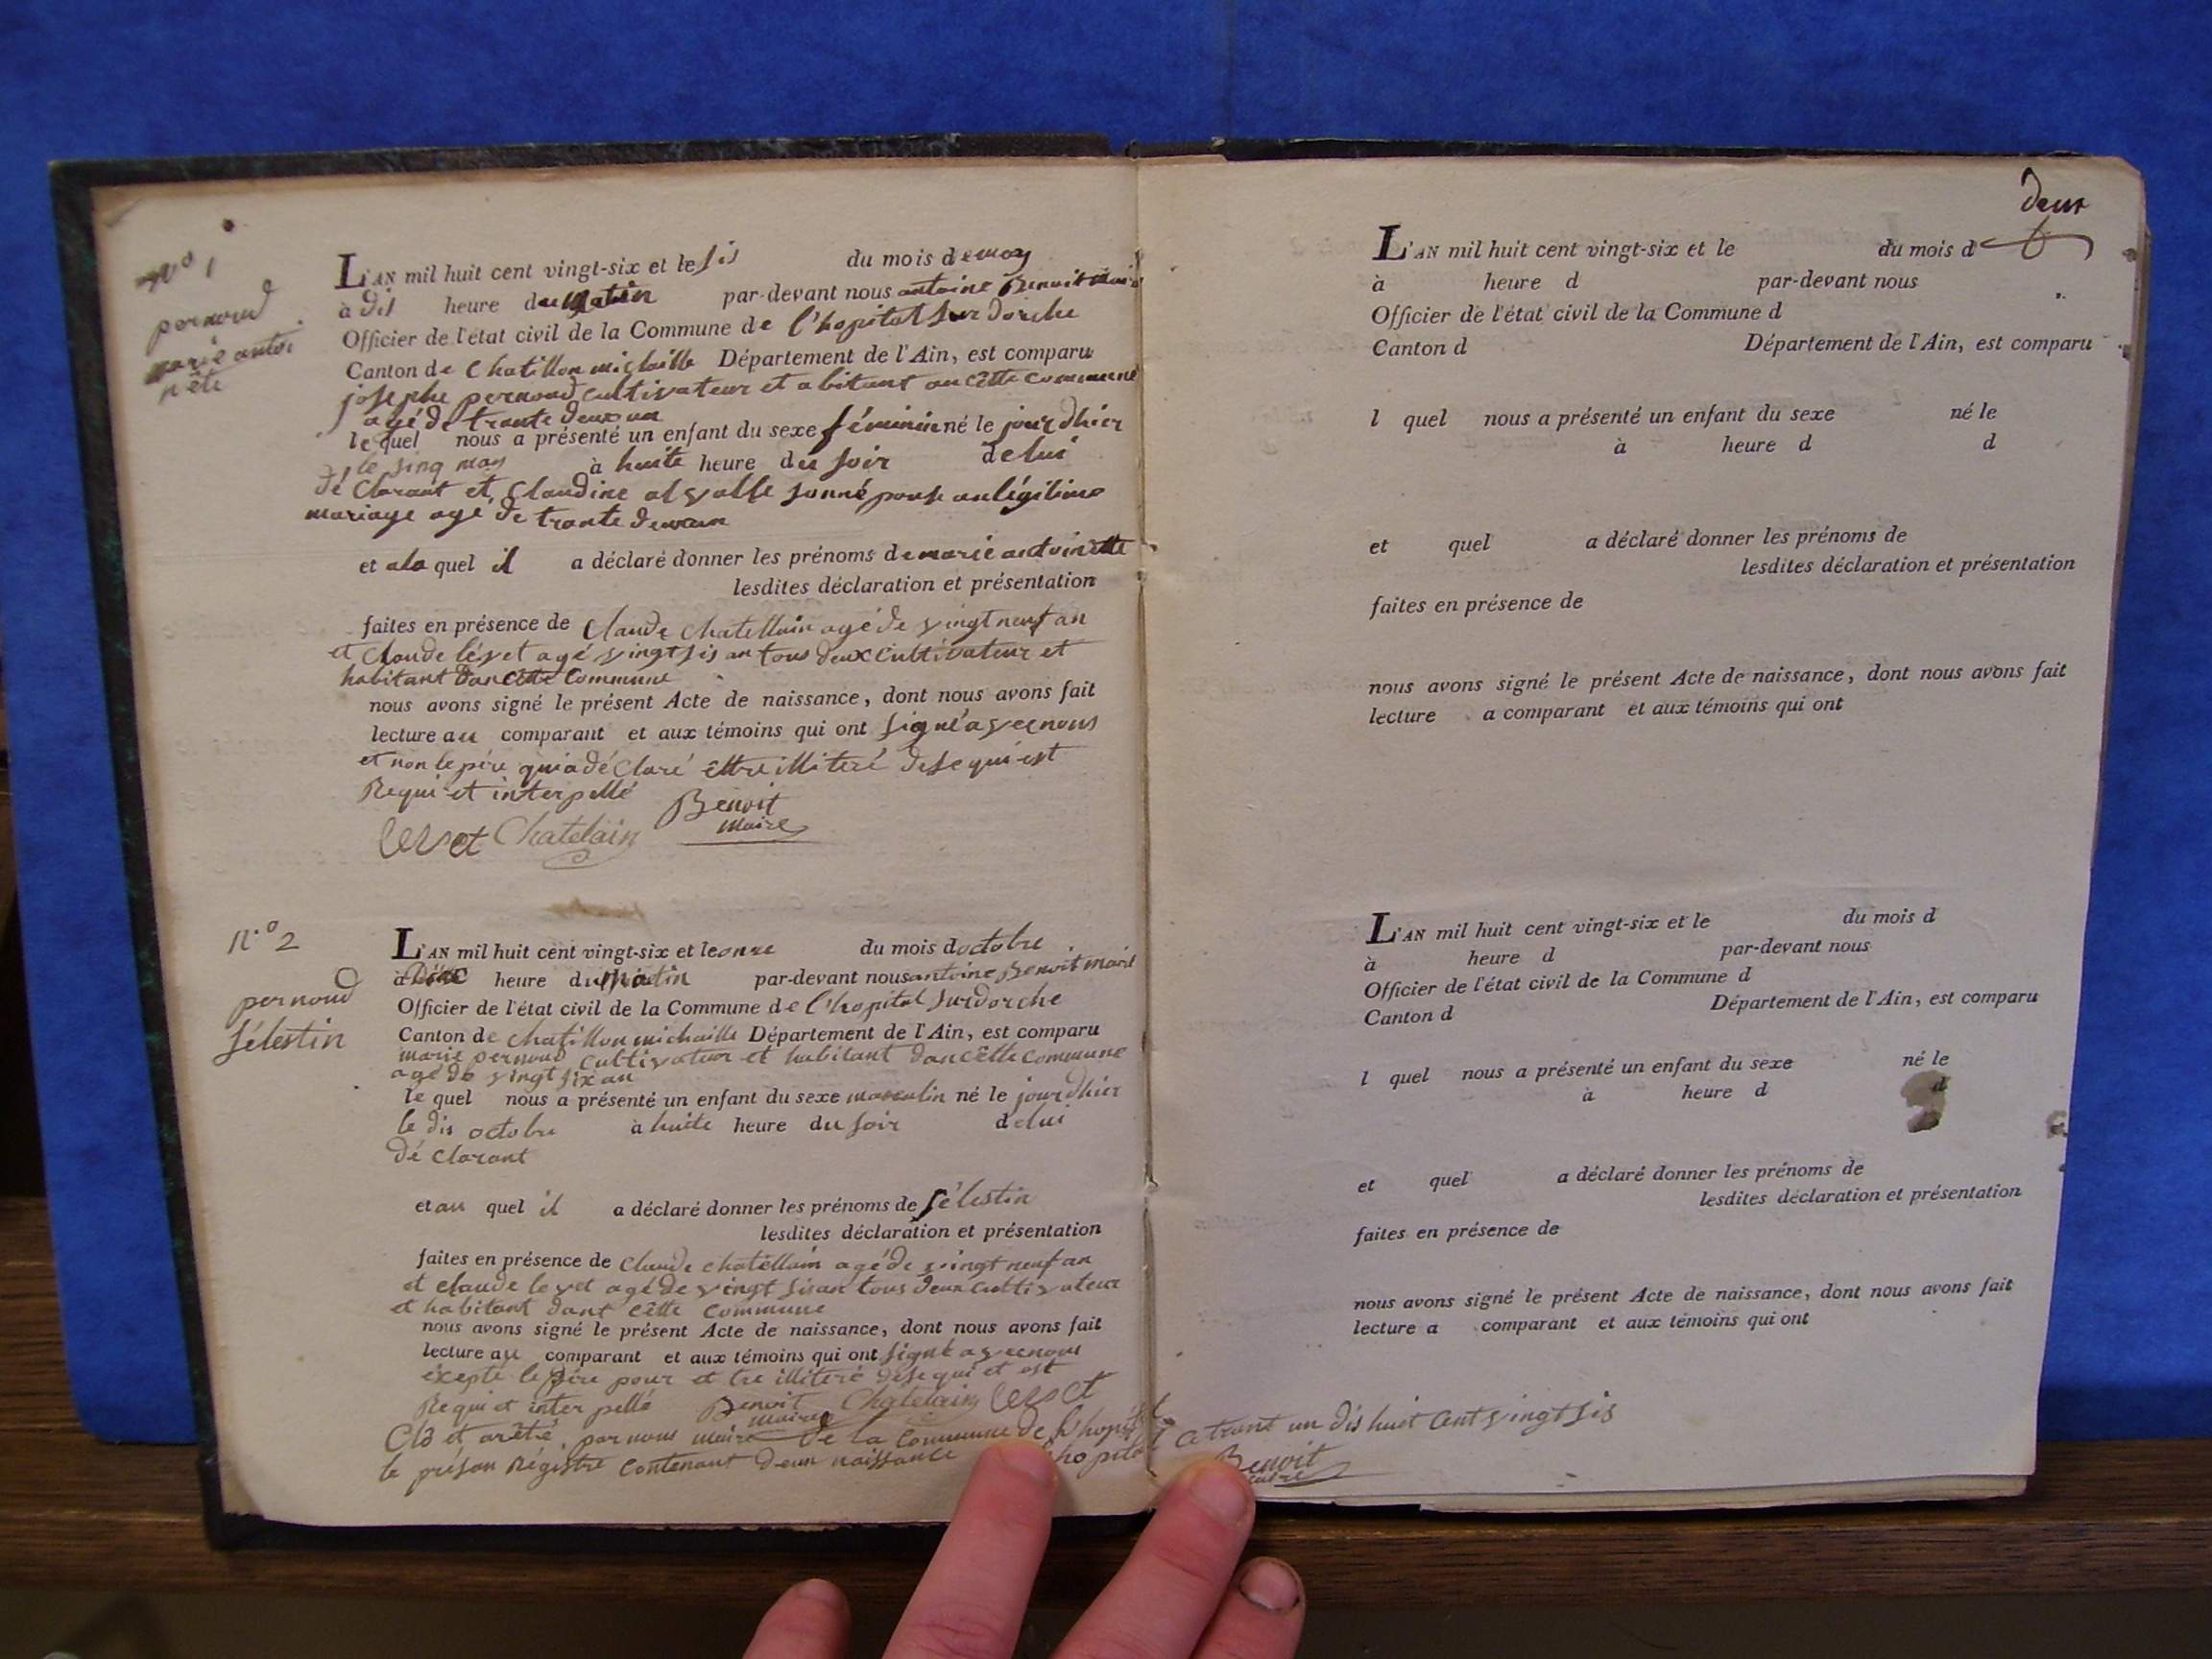 N° 1
pernoud
marie antoi
nête
L'AN mil huit cent vingt-six et le sis du mois de may
à dis heure du matin par-devant nous antoine Benoit maire
Officier de l'état civil de la Commune de l'hopital sur dorche
Canton de Chatillon michaille Département de l'Ain, est comparu
josephe pernoud cultivateur et abitant en cêtte commune
agé de trante deux an
le quel nous a présenté un enfant du sexe féminin né le jourdhier
le sinq may à huite heure du soir de lui
dé Clarant et Claudine sonné pouse an légitime
mariage agé de trante deux an
et a la quel il a déclaré donner les prénoms de marie antoinette
lesdites déclaration et présentation
faites en présence de Claude Chatellain agé de vingt neuf an
et Claude lévet agé vingt sis an tous deux Cultivateur et
habitant dan cêtte Commune
nous avons signé le présent Acte de naissance, dont nous avons fait
lecture au comparant et aux témoins qui ont signé avec nous
et non le père qui a dé Claré êttre illiteré de se qui est
Requi et interpellé
Benoit
maire
Levet Chatelain
N.° 2
pernoud
Sélestin
L'AN mil huit cent vingt-six et le onze du mois doctobre
à heure du matin par-devant nous antoine Benoit maire
Officier de l'état civil de la Commune de l'hopital sur dorche
Canton de chatillon michaille Département de l'Ain, est comparu
marie pernoud cultivateur et habitant dan cêtte commune
agé de vingt six an
le quel nous a présenté un enfant du sexe masculin né le jourdhier
le dis octobre à huite heure du soir de lui
dé Clarant
et au quel il a déclaré donner les prénoms de Sélestin
lesdites déclaration et présentation
faites en présence de Claude chatellain agé de vingt neuf an
et claude levet agé de vingt sis an tous deux cultivateur
et habitant dant cêtte commune
nous avons signé le présent Acte de naissance, dont nous avons fait
lecture au comparant et aux témoins qui ont signé avec nous
éxcepté le père pour et tre illiteré de se qui et est
Requi et inter pellé Benoit maire Chatelain Levet
Clo et arêté par nous maire de la Commune de l'hopital
le présan Régistre Contenant deux naissance
hopital
deux
L'AN mil huit cent vingt-six et le du mois d
à heure d par-devant nous
Officier de l'état civil de la Commune d
Canton d Département de l'Ain, est comparu
l quel nous a présenté un enfant du sexe né le
à heure d d
et quel a déclaré donner les prénoms de
lesdites déclaration et présentation
faites en présence de
nous avons signé le présent Acte de naissance, dont nous avons fait
lecture a comparant et aux témoins qui ont
L'AN mil huit cent vingt-six et le du mois d
à heure d par-devant nous
Officier de l'état civil de la Commune d
Canton d Département de l'Ain, est comparu
l quel nous a présenté un enfant du sexe né le
à heure d d
et quel a déclaré donner les prénoms de
lesdites déclaration et présentation
faites en présence de
nous avons signé le présent Acte de naissance, dont nous avons fait
lecture a comparant et aux témoins qui ont
Ce trant un dis huit Cent vingt sis
Benoit
maire